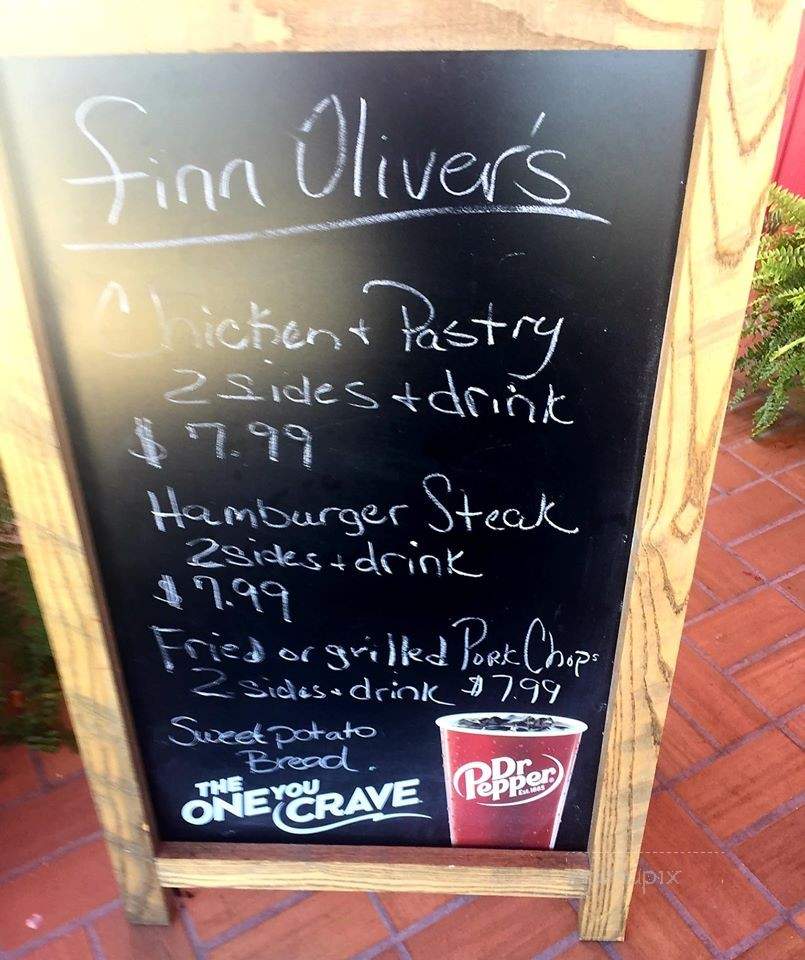 Finn Oliver's
Chicken + Pastry
2 Sides + drink
$7.99
Hamburger Steak
2 sides + drink
$7.99
Fried or grilled Pork Chops
2 Sides + drink $7.99
Sweet potato
Bread.
THE
ONE YOU
CRAVE
Dr
Pepper
Est. 1885